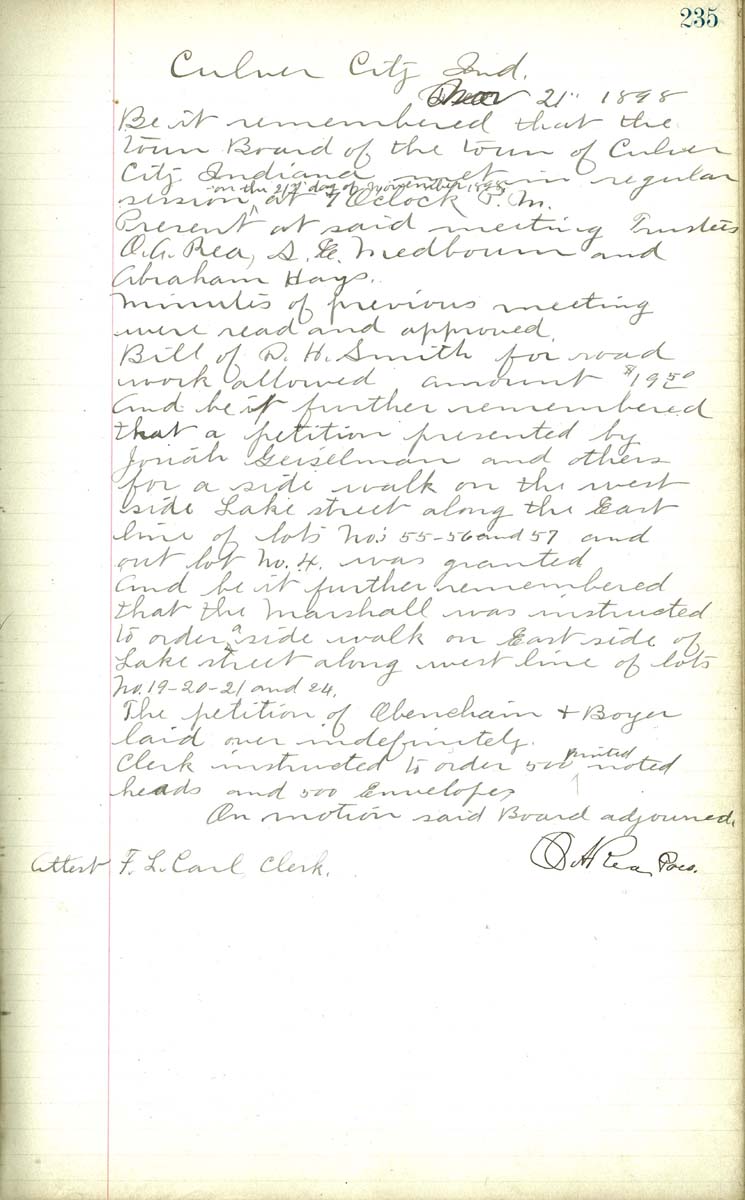 235
Culver City Ind.
Nov 21" 1898
Be it remembered that the
town Board of the town of Culver
City Indiana met in regular
on the 21st day of November, 1898
session, at 7 Oclock P.M.
Present at said meeting Trustees
O.A. Rea, S. E. Medbourn and
Abraham Hays.
Minutes of previous meeting
were read and approved.
Bill of D. H. Smith for road
work allowed amount $19 50
And be it further remembered
that a petition presented by
Josiah Geiselman and others
for a side walk on the west
side Lake street along the East
line of lots No's 55-56 and 57 and
out lot No. 4. was granted
And be it further remembered
that the Marshall was instructed
to order a side walk on East side of
Lake street along west line of lots
No. 19-20-21 and 24.
The petition of Obenchain + Boyer
laid over indefinitely.
Clerk instructed to order 500 printed noted
heads and 500 Envelopes
On motion said Board adjourned.
Attest F. L. Carl Clerk. O A Rea Pres.